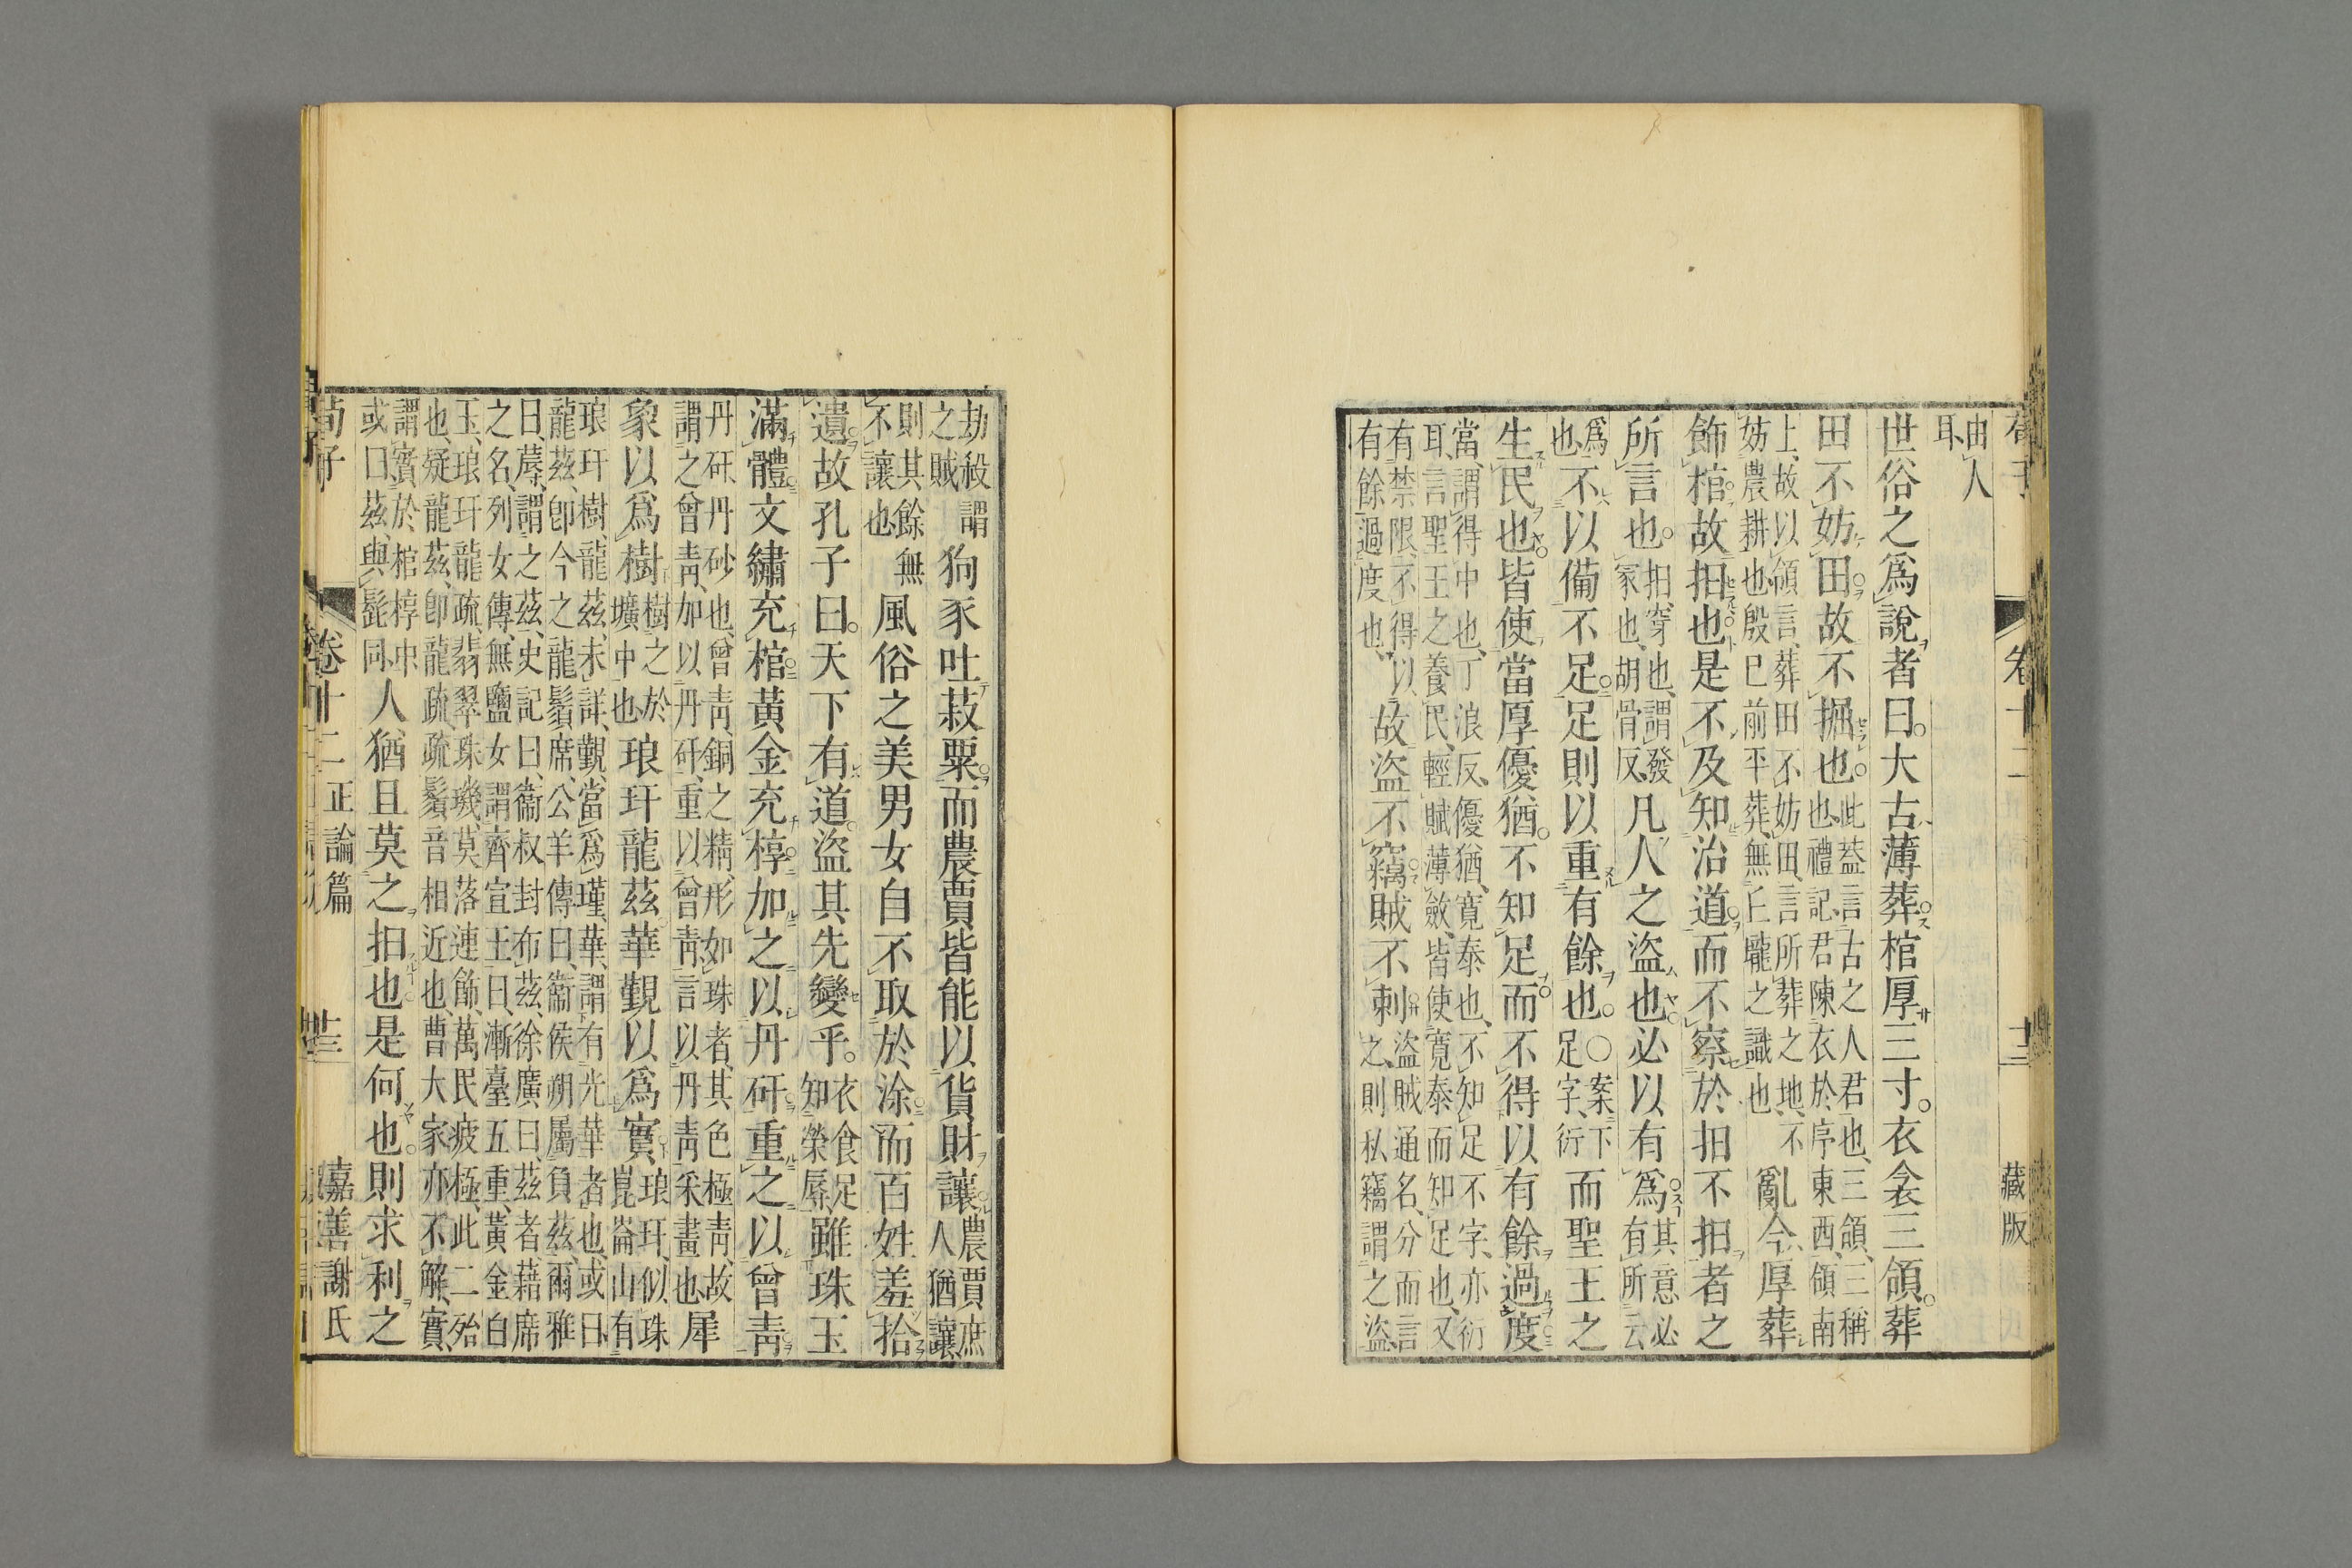 荀子 卷十二 藏版
由人
耳
世俗之爲說者曰。大古薄葬棺厚三寸。衣衾三領。葬
田不妨田。故不掘也。此葢言古之人君也、三領、三稱
也、禮記君陳衣於序東西、領南
上、故以領言、葬田不妨田、言所葬之地、不
妨農耕也、殷已前平葬、無丘壠之識也、亂今厚葬
飾棺故抇也是不及知治道而不察於抇不抇者之
所言也。抇、穿也、謂發
冢也、胡骨反、凡人之盜也必以有爲其意必
有所云
爲
也、不以備不足。足則以重有餘也。○案下
足字、衍而聖王之
生民也。皆使當厚優猶。不知足。而不得以有餘過度
當、謂得中也、丁浪反、優猶、寬泰也、不知足不字、亦衍
耳、言聖王之養民、輕賦薄斂、皆使寬泰而知足也、又
有禁限、不得以
有餘過度也、故盜不竊賊不刺盜賊通名、分而言
之、則私竊謂之盜、
劫殺謂
之賊狗豕吐菽粟而農賈皆能以貨財讓農賈庶
人猶讓、
則其餘無
不讓也、風俗之美男女自不取於涂而百姓羞拾
遺。故孔子曰。天下有道。盜其先變乎。衣食足
知榮辱、雖珠玉
滿體文繡充棺黃金充椁加之以丹矸重之以曾靑
丹矸、丹砂也、曾靑、銅之精、形如珠者、其色極靑、故
謂之曾靑、加以丹矸、重以曾靑、言以丹靑采畫也、犀
象以爲樹樹之於
壙中也、琅玕龍茲華覲以爲實琅玕、似珠
崑崙山有
琅玕樹、龍茲、未詳、覲、當爲瑾、華、謂有光華者也、或曰、
龍茲、卽今之龍鬚席、公羊傳曰、衞侯朔屬負茲、爾雅
曰、蓐、謂之茲、史記曰、衞叔封布茲、徐廣曰、茲者、藉席
之名、列女傳、無鹽女謂齊宣王曰、漸臺五重、黃金白
玉、琅玕龍疏、翡翠珠璣、莫落連飾、萬民疲極、此二殆
也、疑龍茲、卽龍疏、疏鬚音相近也、曹大家亦不解、實、
謂實於棺椁中、
或曰茲、與髭同、人猶且莫之抇也。是何也。則求利之
荀子 卷十二 正論篇 十三 嘉善謝氏